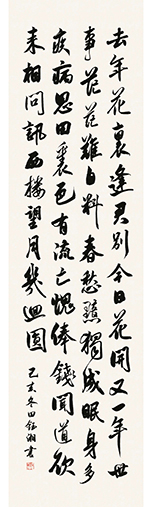 去年花裏逢君别今日花開又一年世
事茫茫難自料春愁黯黯獨成眠身多
疾病思田裏邑有流亡愧俸錢聞道欲
来相問訊西樓望月幾迴圓
己亥冬田書